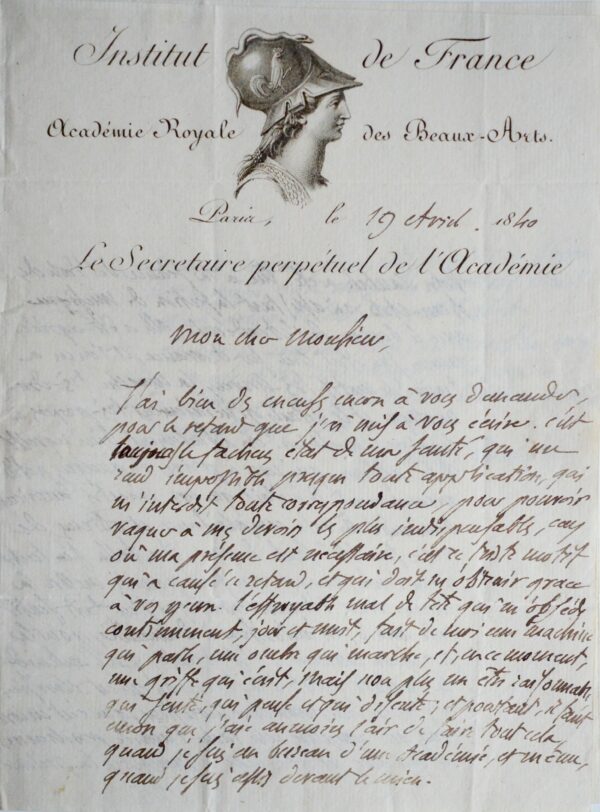 Institut de France
Académie Royale des Beaux-Arts.
Paris, le 19 Avril 1840
Le Secretaire perpétuel de l'Académie
Mon cher Monsieur,
J'ai bien des excuses encore à vous demander,
pour le retard que j'ai mis à vous écrire. c'est
toujours le facheux état de ma santé, qui me
rend impossible presque toute application, qui
m'interdit toute correspondance, pour pouvoir
vaquer à mes devoirs les plus indispensables, ceux
où ma présence est nécessaire, c'est ce triste motif
qui a causé ce retard, et qui doit m'obtenir grace
à vos yeux. l'effroyable mal de tête qui m'obsède
continuement, jour et nuit, fait de moi une machine
qui parle, une ombre qui marche, et, en ce moment,
une griffe qui écrit, mais non plus un être raisonnable
qui sente, qui pense et qui discute; et pourtant, il faut
encor que j'aie au moins l'air de faire tout cela,
quand je suis au bureau d'une Académie, et même,
quand je suis assis devant le mien.